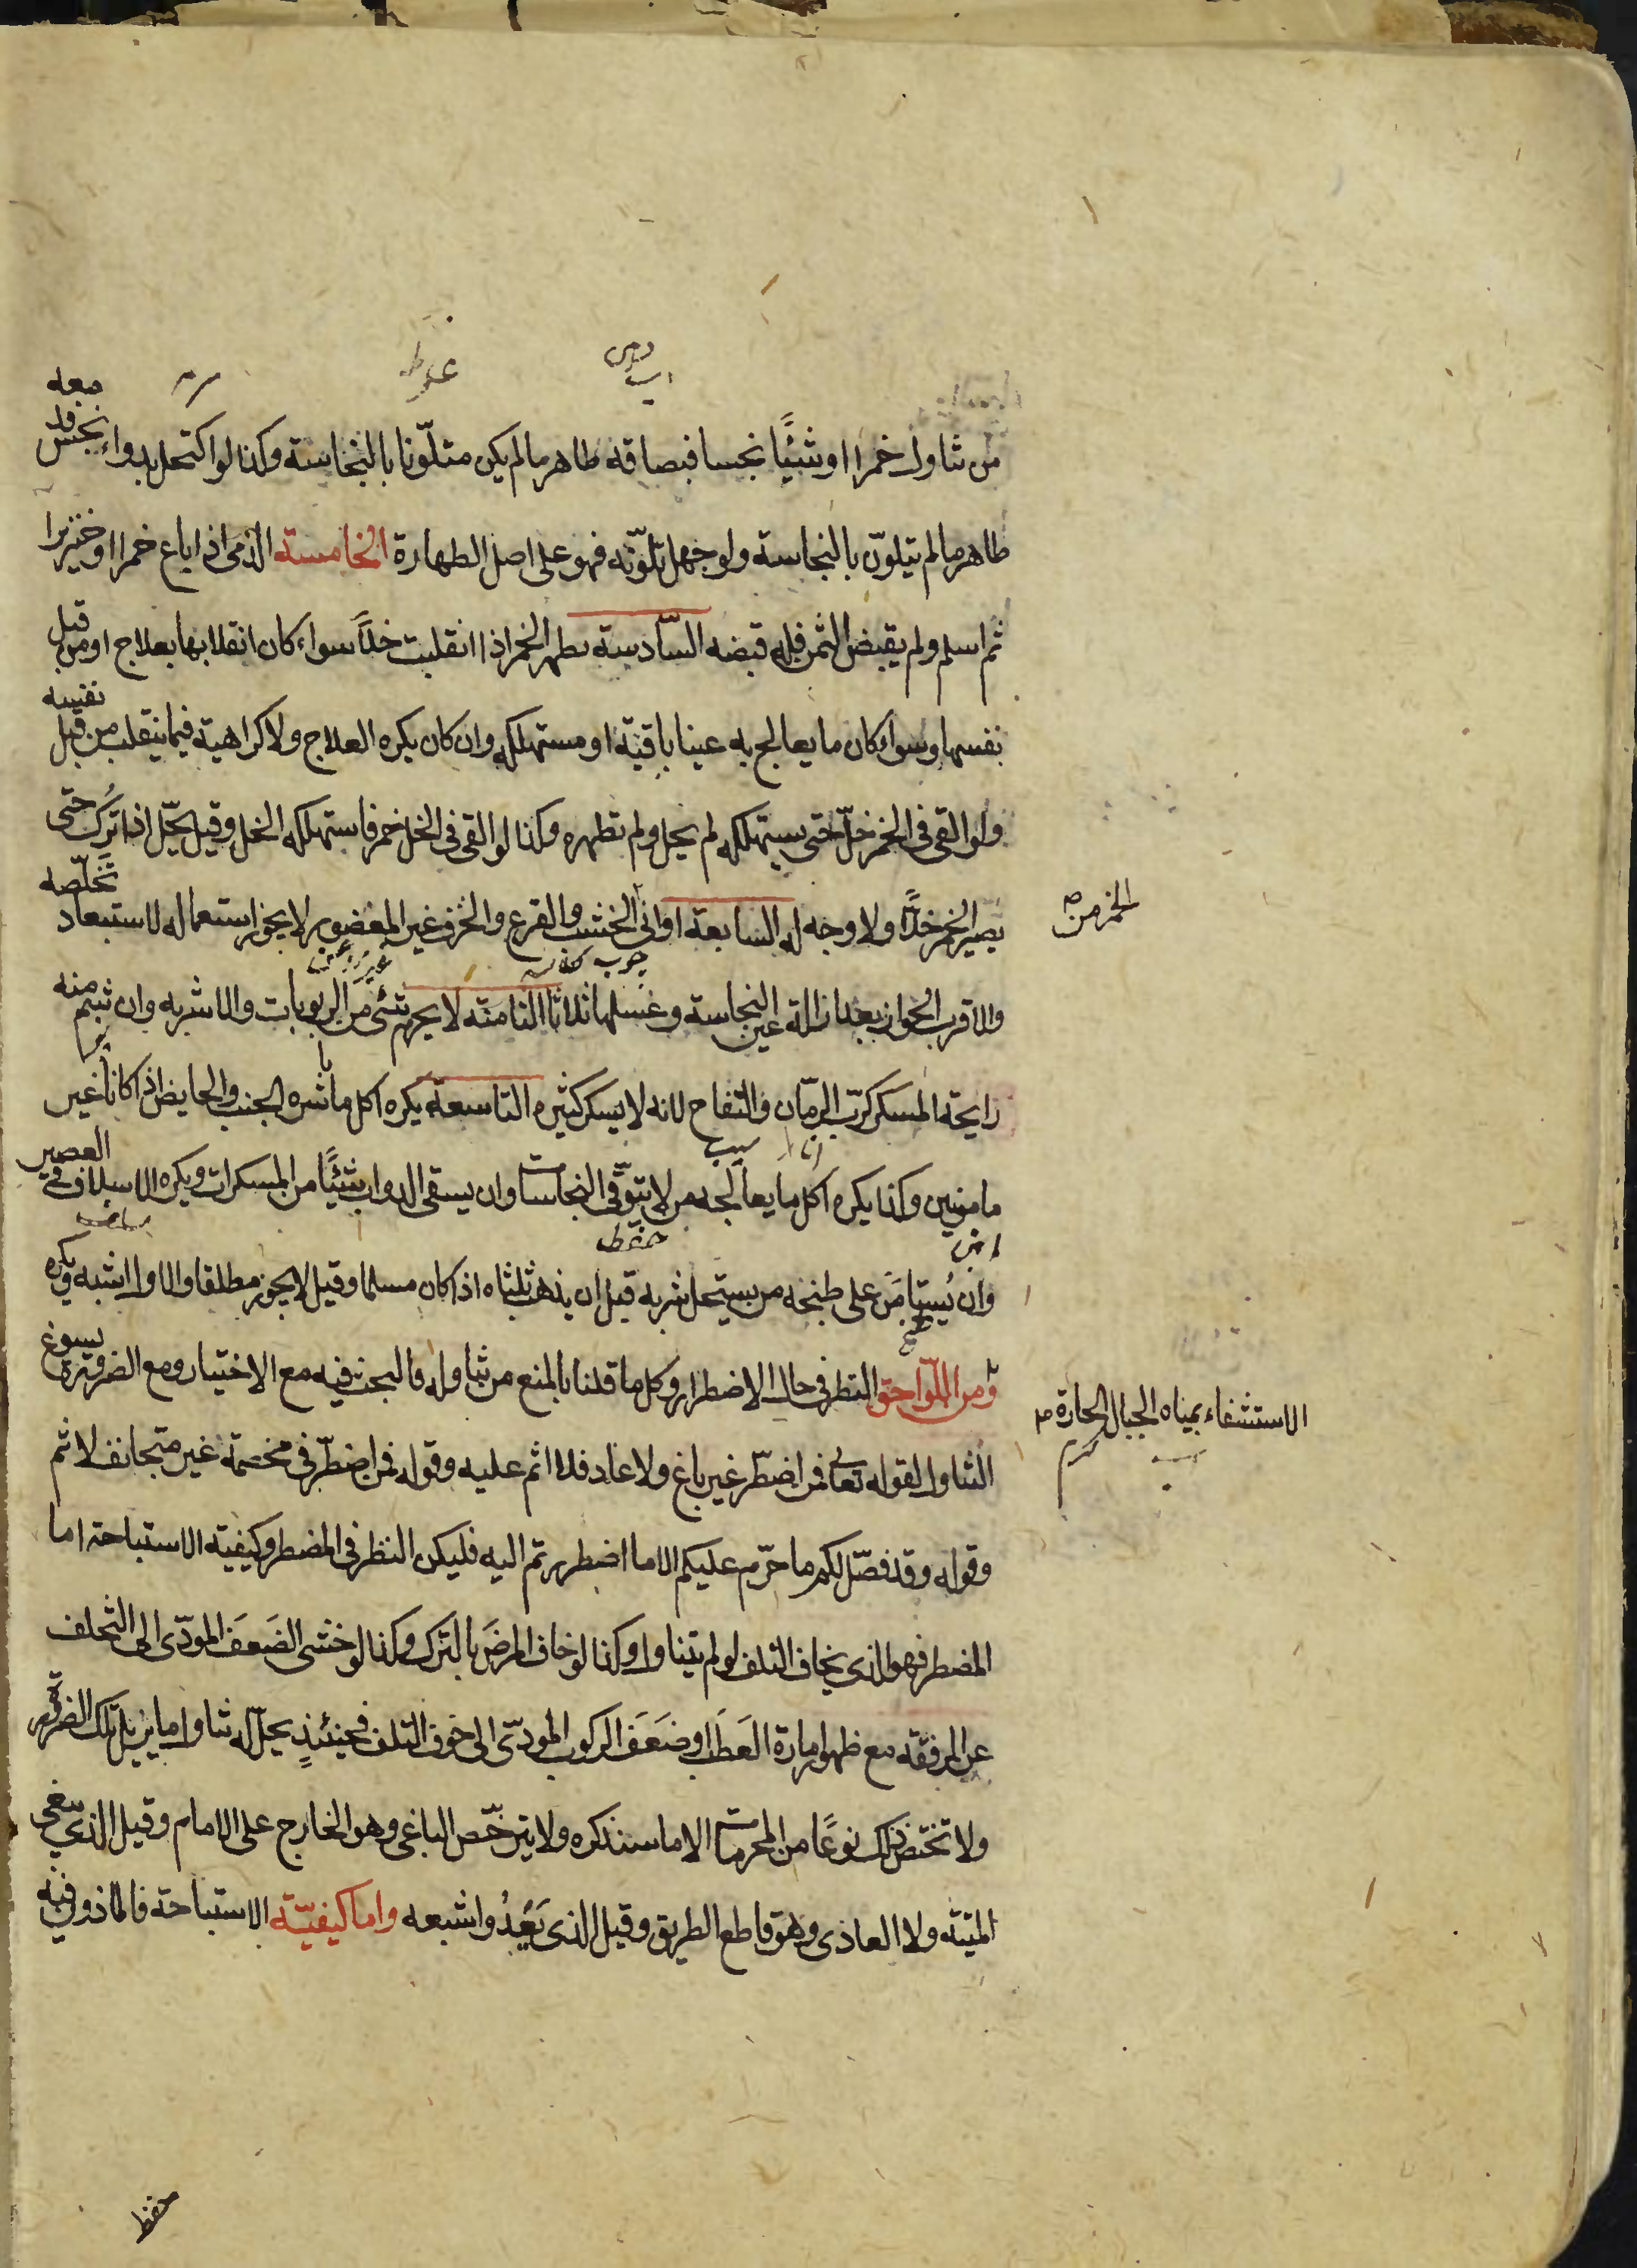 من تناول خمرا او شيئًا نجسا فبصاقه طاهر ما لم يكن متلوّنا بالنجاسة وكذا لو اكتحل بدواء نجس فدمعه
طاهر ما لم يتلوّن بالنجاسة ولو جهل تلوّنه فهو على اصل الطهارة الخامسة الذمى اذا باع خمرا او خنزيرا
ثم اسلم ولم يقبض الثمن فله قبضه السّادسة يطهر الخمر اذا انقلبت خلّاً سواء كان انقلابها بعلاج او من قبل
نفسها وسواء كان ما يعالج به عينا باقية او مستهلكه وان كان يكره العلاج ولا كراهية فيما ينقلب من قبل نفسه
ولو القى فى الخمر خلّ حتى يستهلكه لم يحل ولم تطهره وكذا لو القى فى الخل خمر فاستهلكه الخل وقيل يحّل اذا تُرك حتى
يصير الخمر خلّاً ولا وجه له السابعة اوانى الخشب والقرع والخزف غير المغضور لا يجوز استعماله لاستبعاد تخلّصه
الخمر من صح
والاقرب الجواز بعد ازالة عين النجاسة وغسلها ثلاثا الثامنه لا يحرم شئ من الربوبات والاشربه وان شم منه
رايحة المسكر كربّ الرمّان والتفاح لانه لا يسكر كثيره التاسعة يكره اكل ما باشره الجنب والحايض اذا كانا غير
مامونين وكذا يكره اكل ما يعالجه من لا يتوقّى النجاسات وان يسقى الدواب شيئًا من المسكرات ويكره الاسلاف فى العصير
وان يُستامَن على طبخه من يستحل شربه قبل ان يذهب ثلثاه اذا كان مسلما وقيل لا يجوز مطلقا والاول اشبه ويكره
الاستشفاء بمياه الجبال الحارة صح
ومن اللّواحق النظر فى حال الاضطرار وكل ما قلنا بالمنع من تناوله فالبحث فيه مع الاختيار ومع الضرورة يسوغ
التناول لقوله تعالى فمن اضطرّ غير باغ ولا عاد فلا اثم عليه وقوله فمن اضطرّ فى مخمصة غير متجانف لاثم
وقوله وقد فصّل لكم ما حرّم عليكم الا ما اضطررتم اليه فليكن النظر فى المضطر وكيفية الاستباحة اما
المضطر فهو الذى يخاف التلف لو لم يتناول وكذا لو خاف المرضَ بالترك وكذا لو خشى الضَعفَ المودّى الى التخلف
عن الرفقه مع ظهور امارة العَطَب او ضَعَفَ الركوب المودّى الى خوف التلف فحينئذٍ يحلّ له تناول ما يزيل تلك الضرورة
ولا تختص ذلك نوعًا من المحرمات الا ما سنذكره ولا يترخّص الباغى وهو الخارج على الامام وقيل الذى يبغى
الميته ولا العادى وهو قاطع الطريق وقيل الذى يَعدُوا شبعه واما كيفيّة الاستباحة فالماذون فيه
حفظ